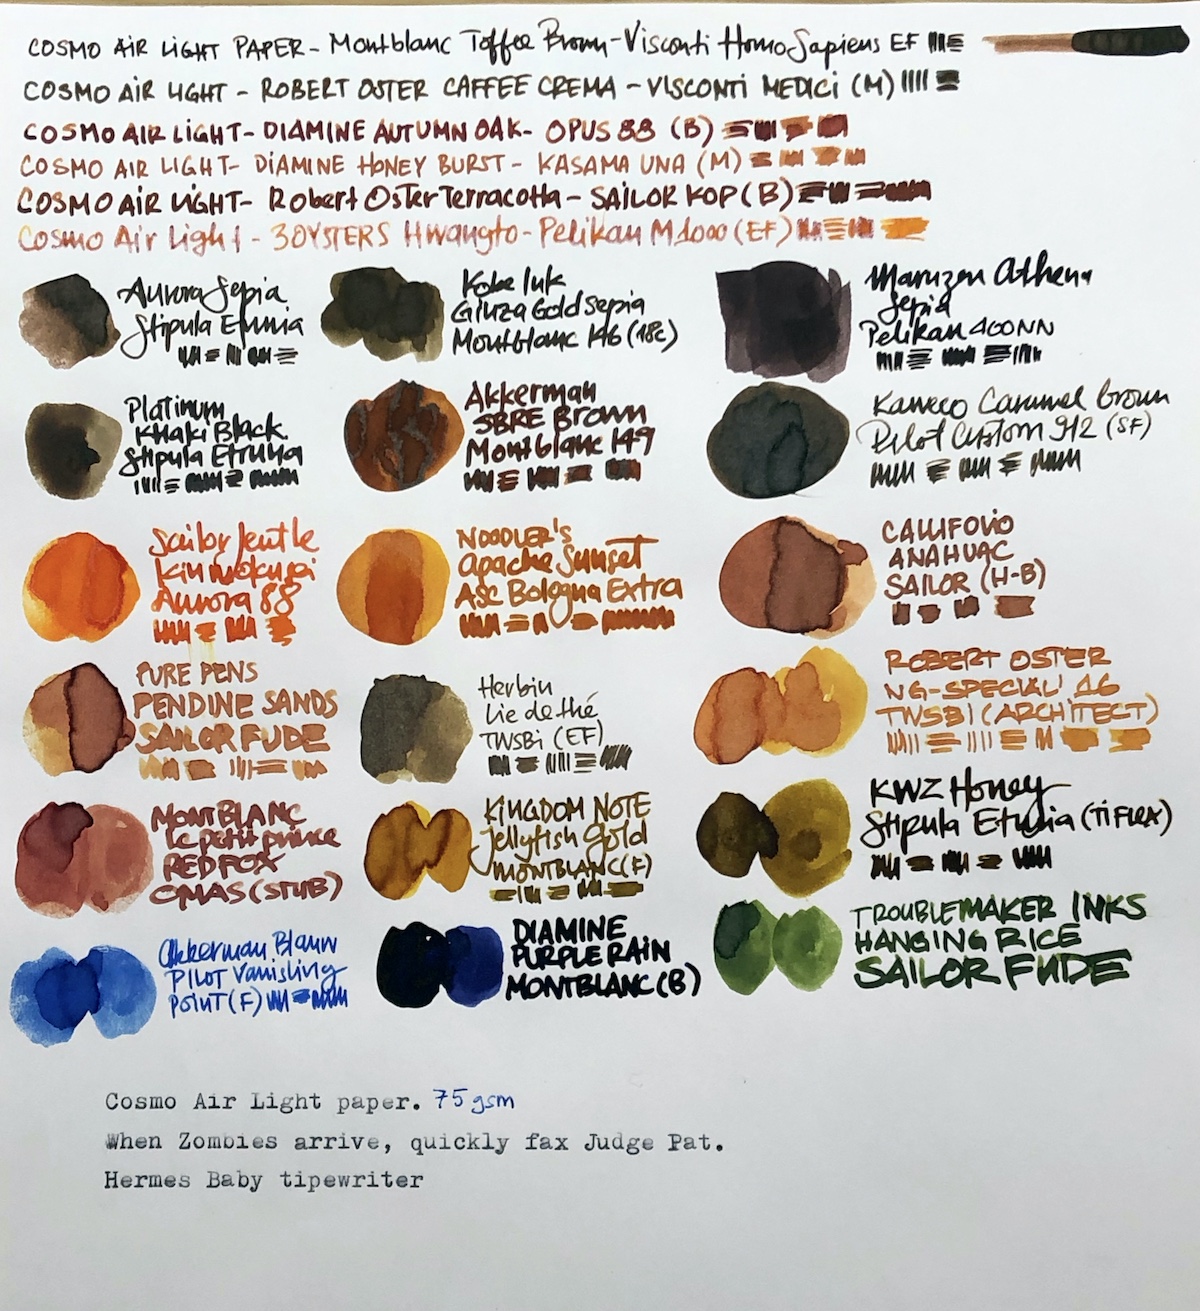 COSMO AiR LiGHT PAPER - Montblanc Toffee Brown - Visconti HomoSapiens EF
COSMO AiR LIGHT - ROBERT OSTER CAFFEE CREMA - VISCONTi MEDiCi (M)
COSMO AIR LIGHT - DIAMINE AUTUMN OAK - OPUS 88 (B)
COSMO AIR LIGHT - DiAMINE HONEY BURST - KASAMA UNA (M)
COSMO AiR LIGHT - Robert Oster Terracotta - SAiLOR KOP (B)
Cosmo Air Light - 3OYSTERS Hwangto - Pelikan M1000 (EF)
Aurora Sepia
Stipula Etruria
Kobe Ink
Ginza Gold sepia
Montblanc 146 (18c)
Maruzen Athena
Sepia
Pelikan 400NN
Platinum
Khaki Black
Stipula Etruria
Akkerman
SBRE Brown
Montblanc 149
Kaweco Caramel brown
Pilot Custom 912 (SF)
Sailor Jentle
Kinmokusei
Aurora 88
NOODLER'S
Apache Sunset
ASC Bologna Extra
CALLIFOLIO
ANAHUAC
SAILOR (H-B)
PURE PENS
PENDINE SANDS
SAILOR FUDE
Herbin
Lie de thé
TWSBi (EF)
ROBERT OSTER
NG-SPECIAL' 16
TWSBI (ARCHITECT)
MONTBLANC
le petit prince
RED FOX
OMAS (STUB)
KINGDOM NOTE
Jellyfish gold
MONTBLANC (F)
KWZ Honey
Stipula Etruria (Ti FLEX)
Akkerman Blauw
PILOT Vanishing
POINT (F)
DIAMINE
PURPLE RAIN
MONTBLANC (B)
TROUBLEMAKER INKS
HANGING RICE
SAILOR FUDE
Cosmo Air Light paper. 75 gsm
When Zombies arrive, quickly fax Judge Pat.
Hermes Baby tipewriter